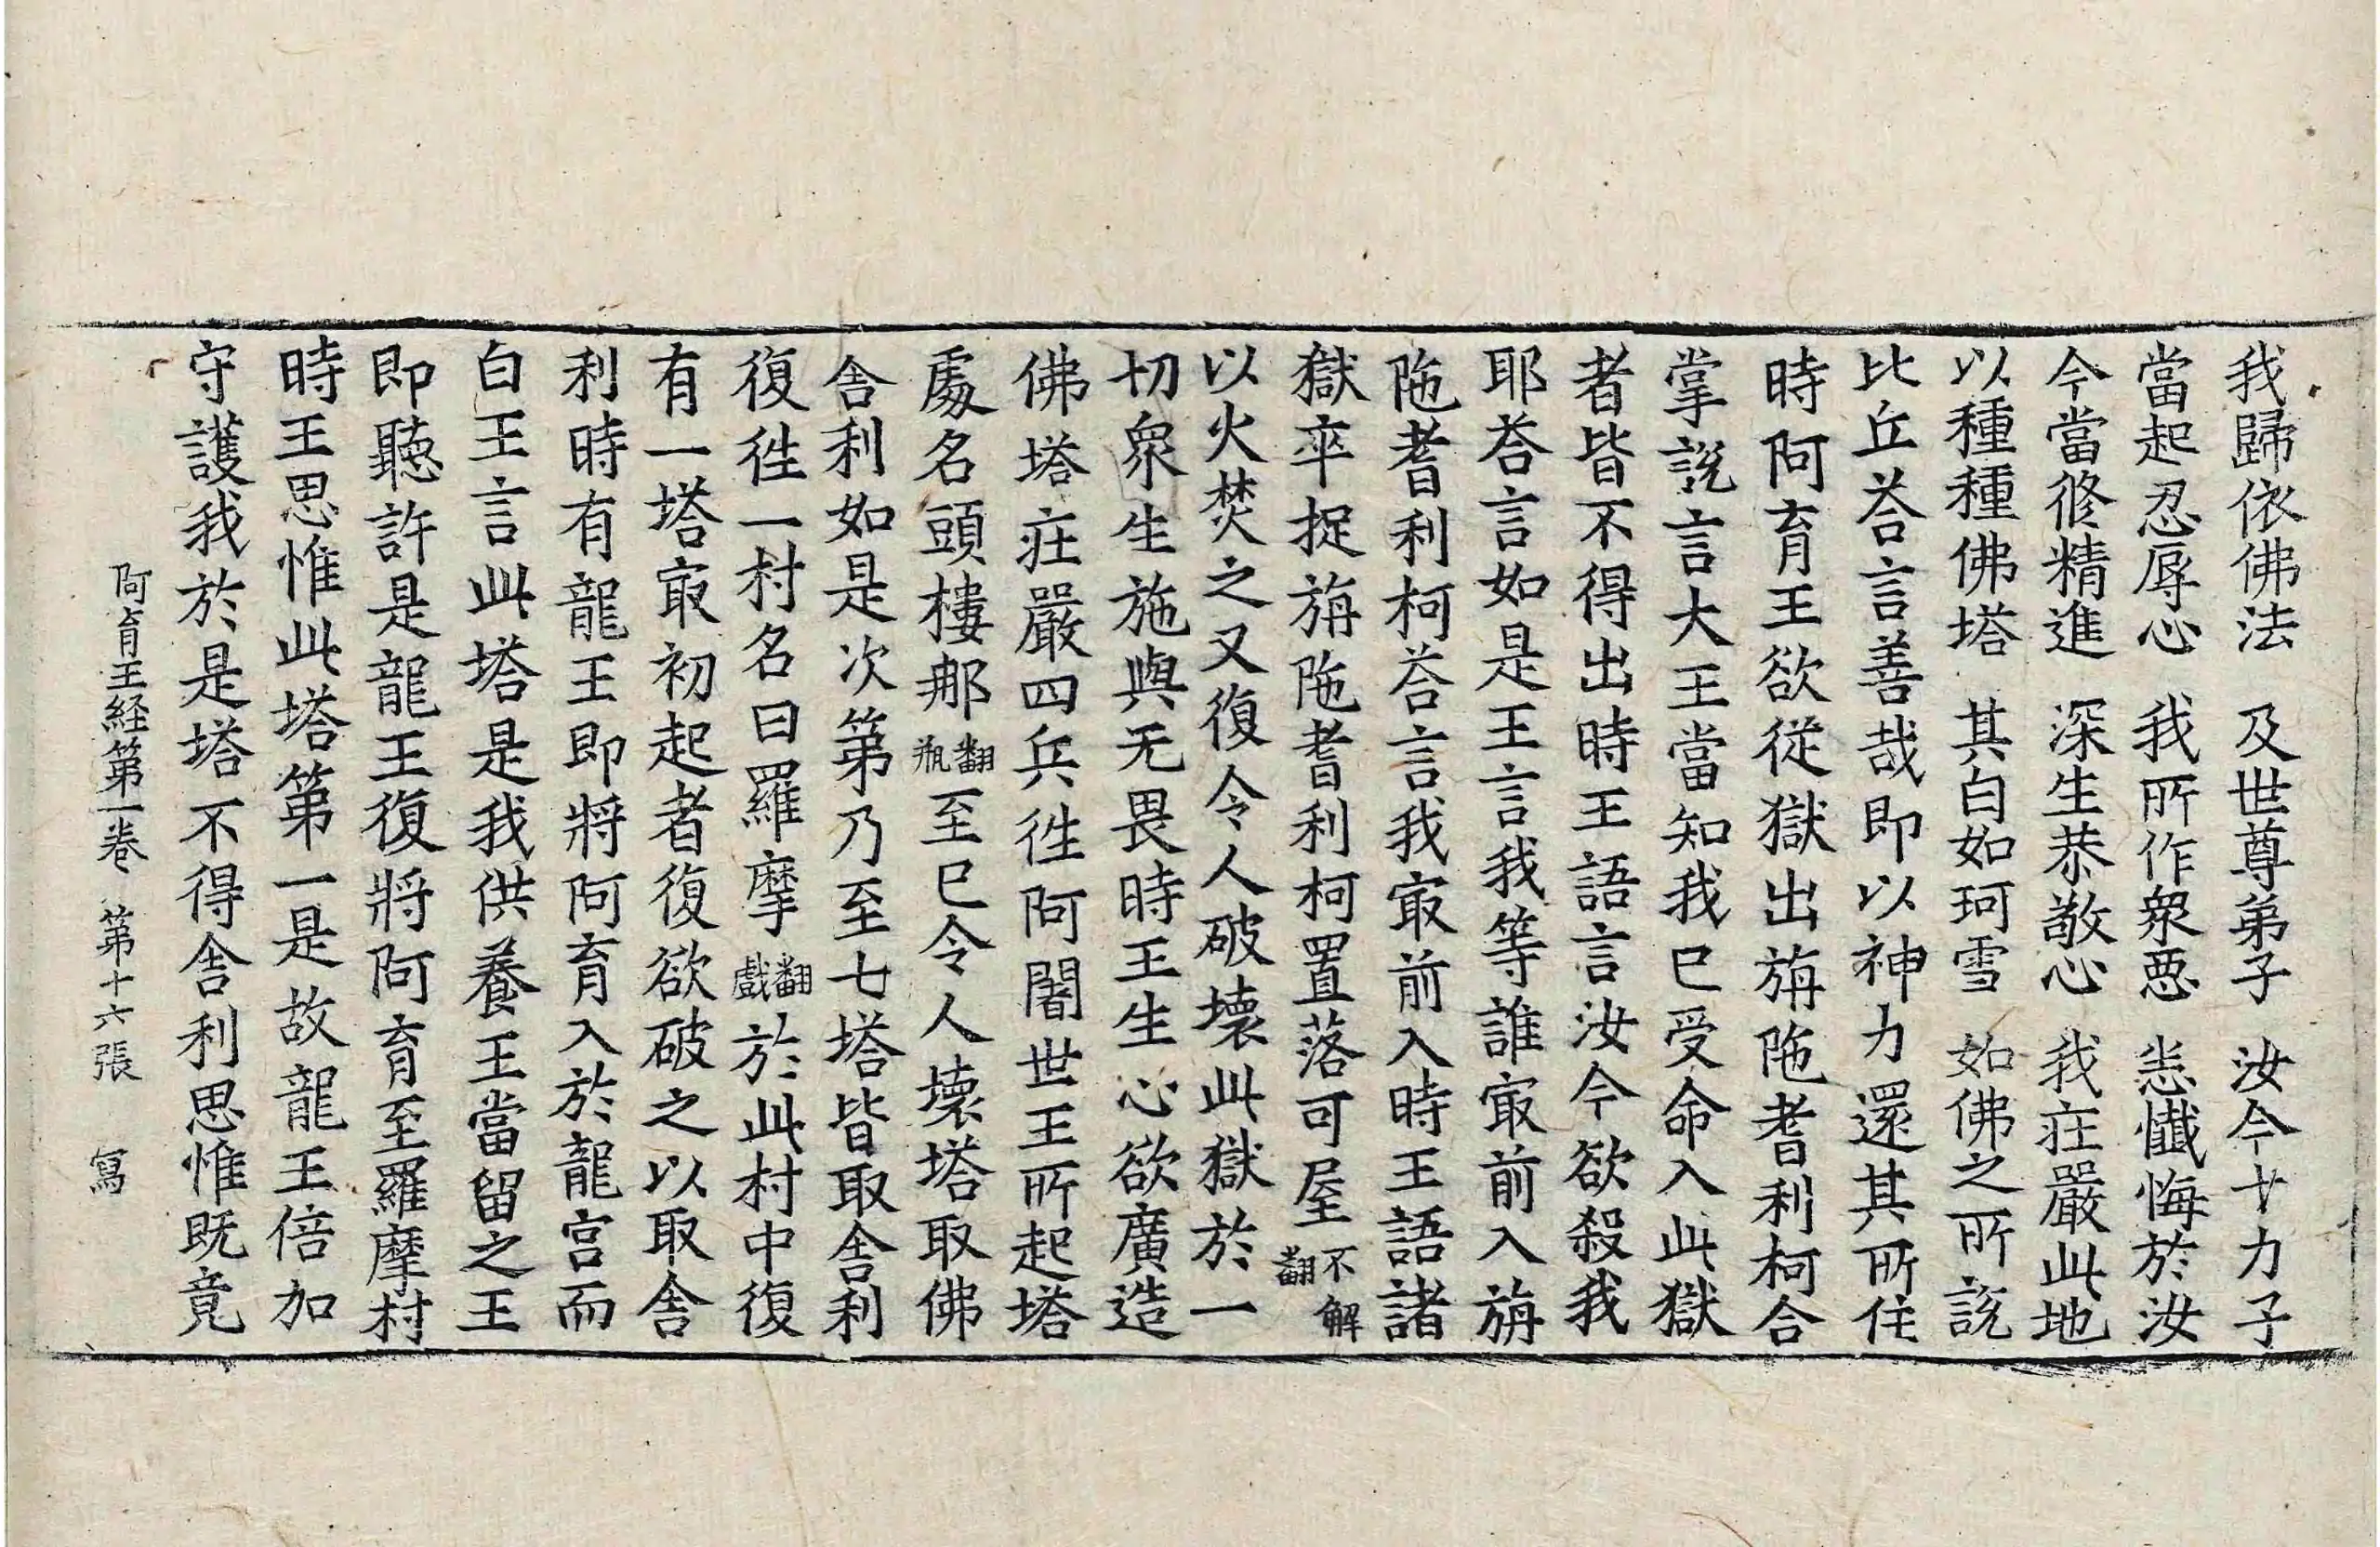 我歸依佛法　及世尊弟子　汝今十力子
當起忍辱心　我所作衆惡　恙懺悔於汝
今當修精進　深生恭敬心　我莊嚴此地
以種種佛塔　其白如珂雪　如佛之所說
比丘荅言善哉即以神力還其所住
時阿育王欲從獄出旃陁耆利柯合
掌說言大王當知我已受命入此獄
者皆不得出時王語言汝今欲殺我
耶荅言如是王言我等誰㝡前入旃
陁耆利柯荅言我㝡前入時王語諸
獄卒捉旃陁耆利柯置落可屋不解翻
以火焚之又復令人破壞此獄於一
切衆生施與无畏時王生心欲廣造
佛塔莊嚴四兵徃阿闍世王所起塔
處名頭樓那翻瓶至已令人壞塔取佛
舍利如是次第乃至七塔皆取舍利
復徃一村名曰羅摩翻戲於此村中復
有一塔㝡初起者復欲破之以取舍
利時有龍王即將阿育入於龍宮而
白王言此塔是我供養王當留之王
即聽許是龍王復將阿育至羅摩村
時王思惟此塔第一是故龍王倍加
守護我於是塔不得舍利思惟既竟
阿育王経第一卷　第十六張　寫